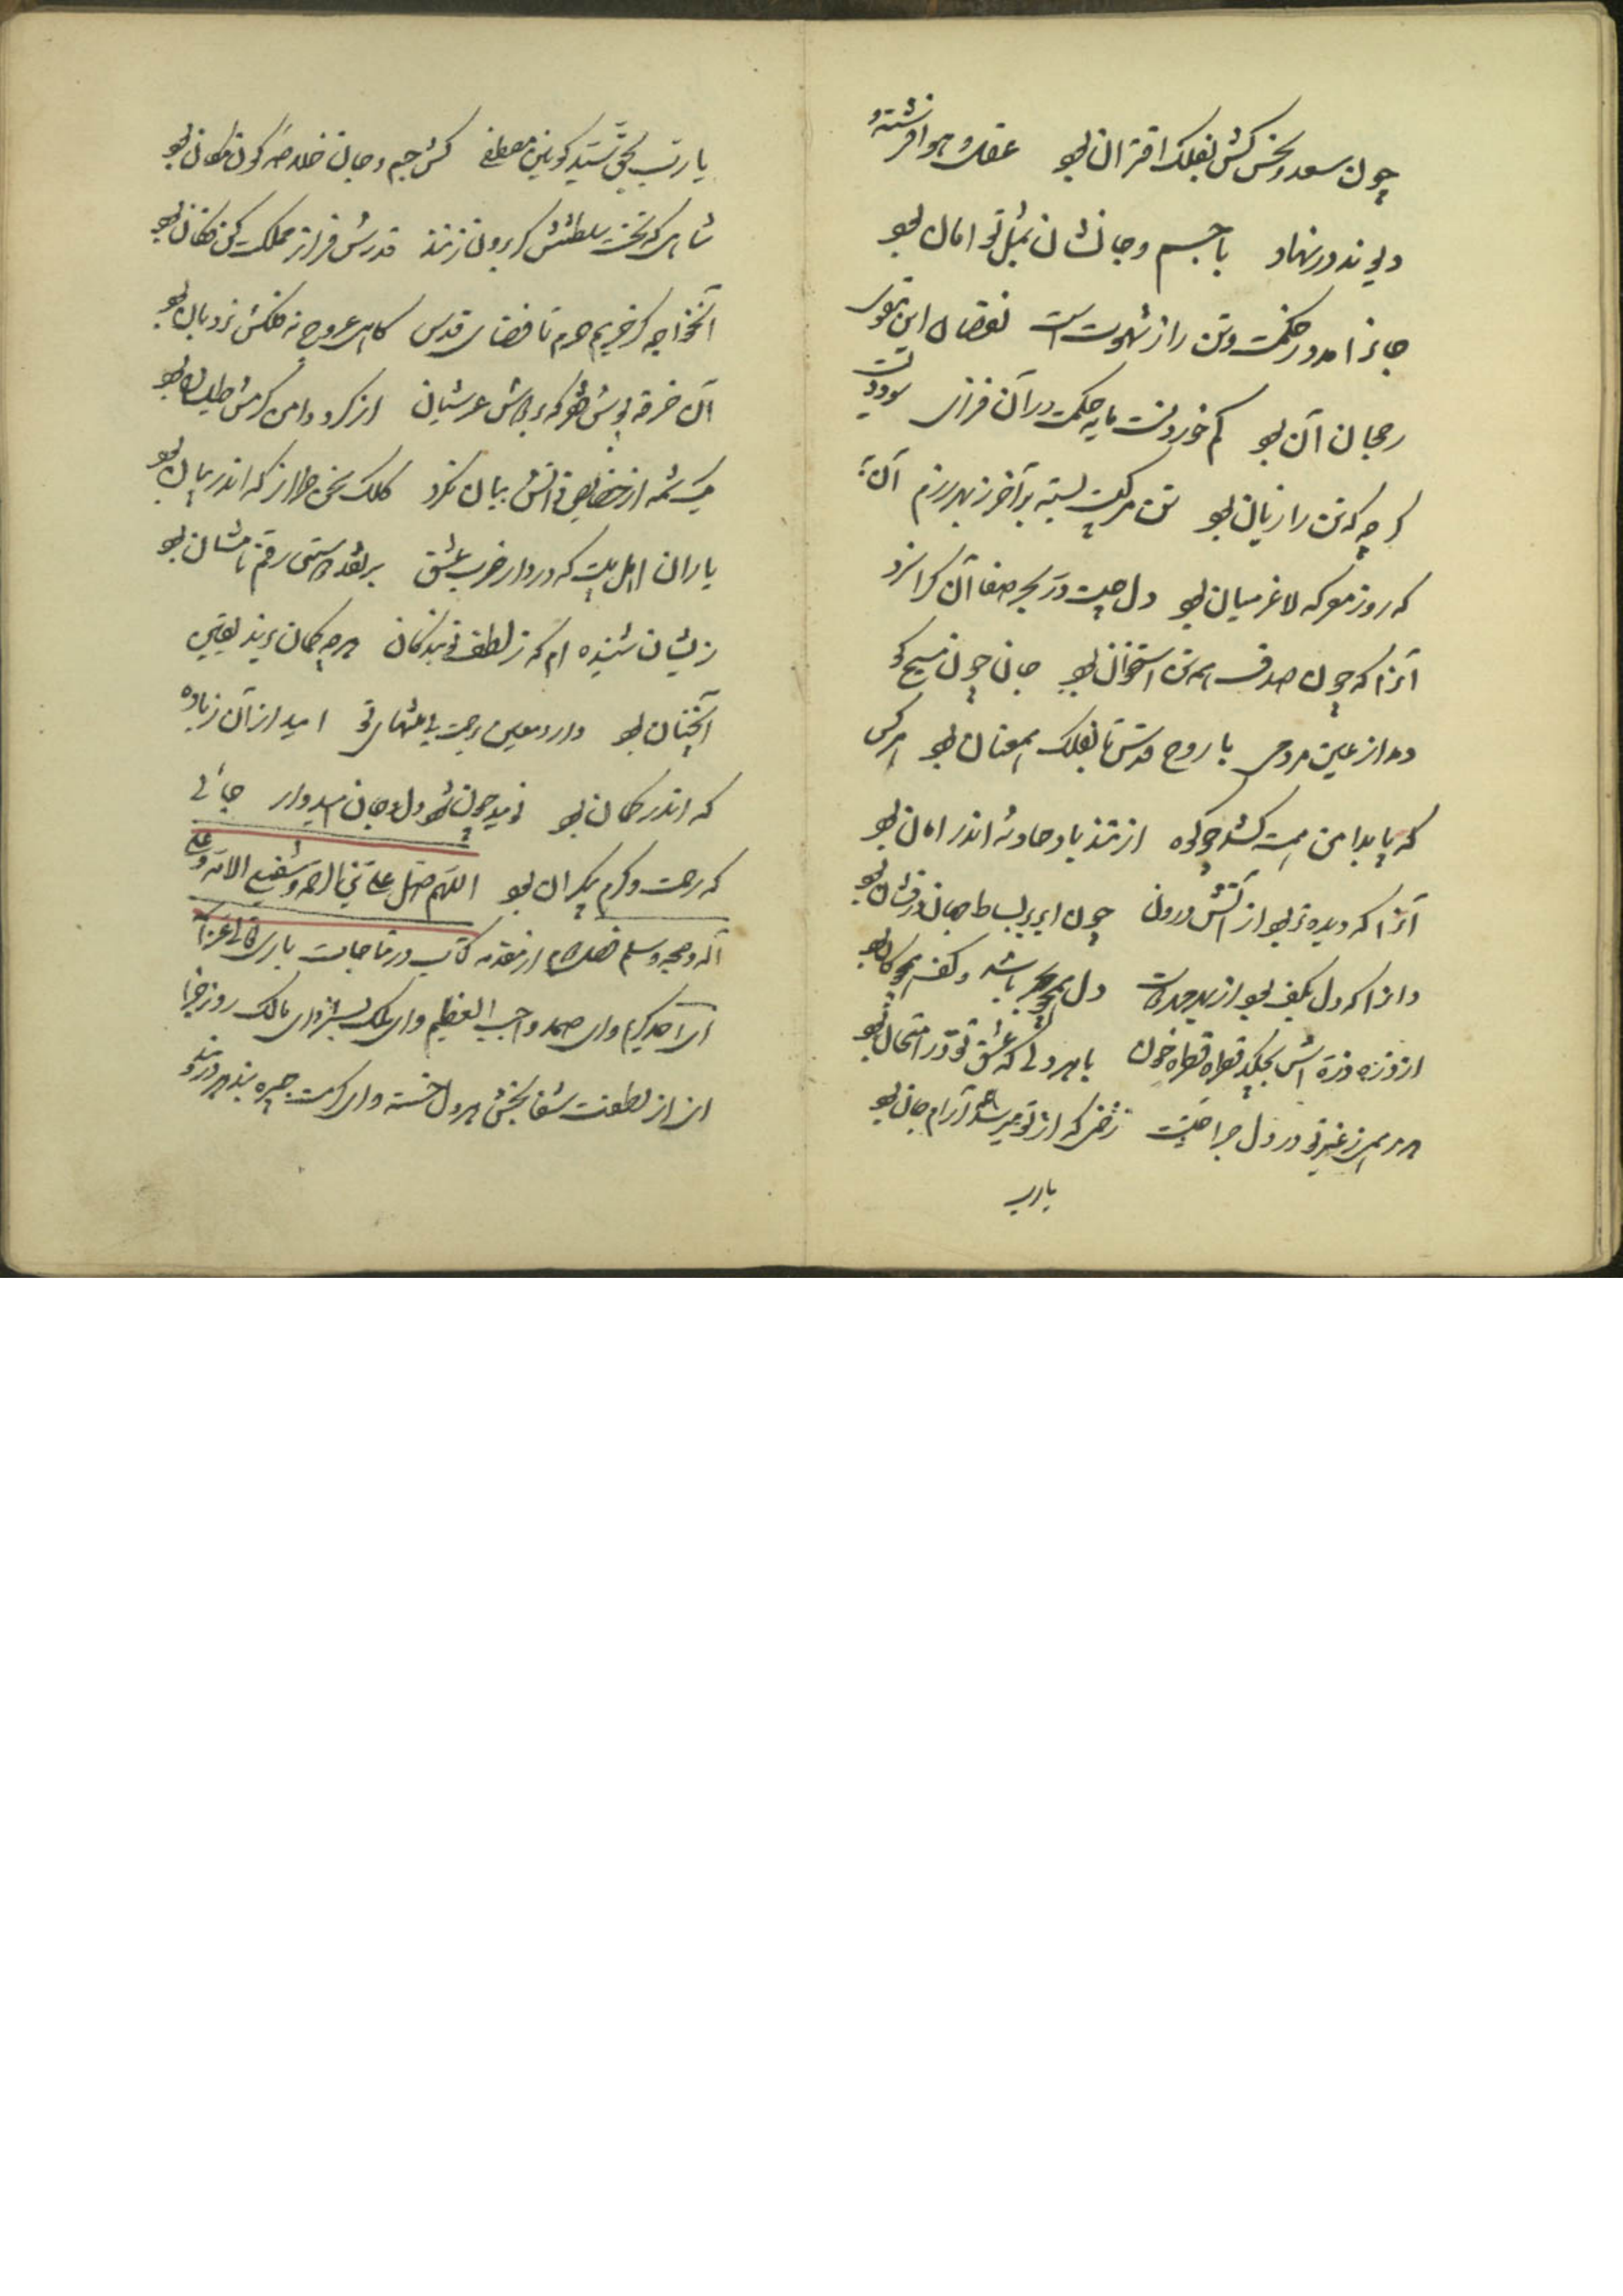 چون سعد و نحس کش بفلک اقتران بود عقل و هوا فرشته و
دیو ند در نهاد با جسم و جانشان بمثل تو امان بود
جانرا مدد ز حکمت و تن را ز شهوت است نقصان این تفوت
رجحان آن بود کم خوردنت مایه حکمت در آن فزای سودت
کرچه که تن را زیان بود تن مرکبیست بسته بر آخر ز بهر رزم آن به
که روز معرکه لاغر میان بود دل چیست در بحر صفا آن کرا سزد
آنرا که چون صدف همه تن استخوان بود جان چون مسیح کو
دمد از عین مردمی با روح قدس تا بفلک همعنان بود هر کس
که پا بدامن همت کشد چو کوه از تند باد حادثه اندر امان بود
آنرا که دیده تر بود از آتش درون چون ابر بر بساط جهان درفشان بود
وانرا که دل بکف بود از بهر دل همچو بحر باشد و کف همچو کان بود
از ذره ذره اش بچکد قطره قطره خون با هر دلی که عشق تو در امتحان بود
هر مرهمی ز غیر تو در دل جراحتیست زخمی که از تو میرسد آرام جان بود
یارب
یا رب بحق سید کونین مصطفی کش جسم و جان خلاصه کون و مکان بود
شاهی که تخت سلطنتش کر برون زنند قدرش فراز مملکت کن فکان بود
آنخواجه کز حریم حرم تا فضای قدس کاه عروج نه فلکش نردبان بود
آن خرقه پوش فقر که بر دوش عرشیان از کرد دامن کرمش طیلسان بود
یک شمه از خصایص ذاتش بیان نکرد کلک سخن طراز که اندر بیان بود
یاران اهل بیت که در دار ضرب عشق بر نقد راستی رقم نامشان بود
زیشان شنیده ام که ز لطف تو بندکان هر چه کمان برند یقین
آنچنان بود دارد معین رحمت بی منتهای تو امید از آن زیاده
که اندر کمان بود نومید چون شود دل و جان امیدوار جائی
که رحمت و کرم بیکران بود اللهم صل علی نبی الرحمه و شفیع الامه و علی
آله و صحبه و سلم فصل دوم از مقدمه کتاب در مناجات باری تعالی عز اسمه
ای احد کریم وای صمد واجب التعظیم وای ملک بی نیاز وای مالک روز جزا
ای از لطفت شفا بخش هر دل خسته وای کرمت جبیره بند هر دردمند و